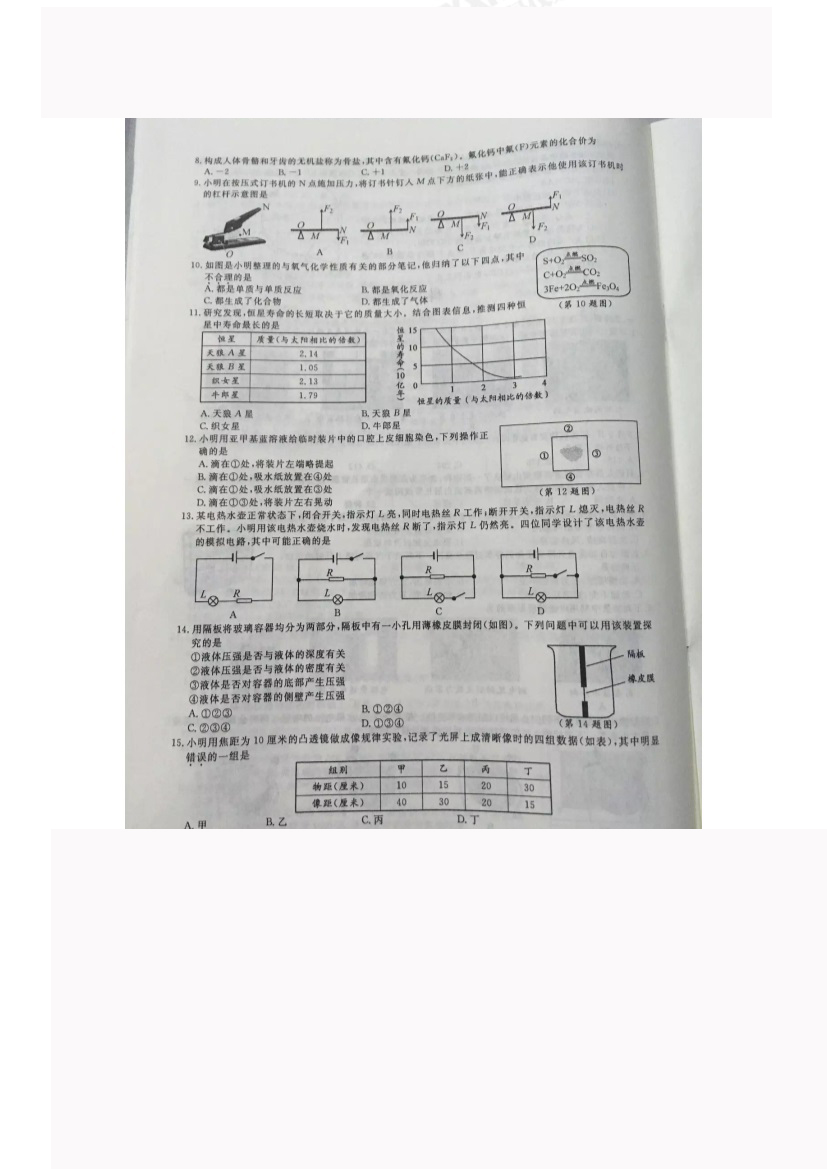 8. 构成人体骨骼和牙齿的无机盐称为骨盐,其中含有氟化钙(CaF₂)。氟化钙中氟(F)元素的化合价为
A. -2 B. -1 C. +1 D. +2
9. 小明在按压式订书机的 N 点施加压力,将订书针钉入 M 点下方的纸张中,能正确表示他使用该订书机时
的杠杆示意图是
N
M
O
F₂ O M N F₁
F₂ F₁ O M N
O M N F₂ F₁
F₁ O M N F₂
A B C D
10. 如图是小明整理的与氧气化学性质有关的部分笔记,他归纳了以下四点,其中
不合理的是
A. 都是单质与单质反应 B. 都是氧化反应
C. 都生成了化合物 D. 都生成了气体
S+O₂ 点燃 SO₂
C+O₂ 点燃 CO₂
3Fe+2O₂ 点燃 Fe₃O₄
(第 10 题图)
11. 研究发现,恒星寿命的长短取决于它的质量大小。结合图表信息,推测四种恒
星中寿命最长的是
恒星 质量(与太阳相比的倍数)
天狼 A 星 2.14
天狼 B 星 1.05
织女星 2.13
牛郎星 1.79
恒星的寿命(10亿年)
15
10
5
0 1 2 3 4
恒星的质量(与太阳相比的倍数)
A. 天狼 A 星 B. 天狼 B 星
C. 织女星 D. 牛郎星
12. 小明用亚甲基蓝溶液给临时装片中的口腔上皮细胞染色,下列操作正
确的是
A. 滴在①处,将装片左端略提起
B. 滴在①处,吸水纸放置在④处
C. 滴在①处,吸水纸放置在③处
D. 滴在①③处,将装片左右晃动
②
① ③
④
(第 12 题图)
13. 某电热水壶正常状态下,闭合开关,指示灯 L 亮,同时电热丝 R 工作;断开开关,指示灯 L 熄灭,电热丝 R
不工作。小明用该电热水壶烧水时,发现电热丝 R 断了,指示灯 L 仍然亮。四位同学设计了该电热水壶
的模拟电路,其中可能正确的是
L R
R L
R L
R L
A B C D
14. 用隔板将玻璃容器均分为两部分,隔板中有一小孔用薄橡皮膜封闭(如图)。下列问题中可以用该装置探
究的是
①液体压强是否与液体的深度有关
②液体压强是否与液体的密度有关
③液体是否对容器的底部产生压强
④液体是否对容器的侧壁产生压强
A. ①②③ B. ①②④
C. ②③④ D. ①③④
隔板
橡皮膜
(第 14 题图)
15. 小明用焦距为 10 厘米的凸透镜做成像规律实验,记录了光屏上成清晰像时的四组数据(如表),其中明显
错误的一组是
组别 甲 乙 丙 丁
物距(厘米) 10 15 20 30
像距(厘米) 40 30 20 15
A. 甲 B. 乙 C. 丙 D. 丁